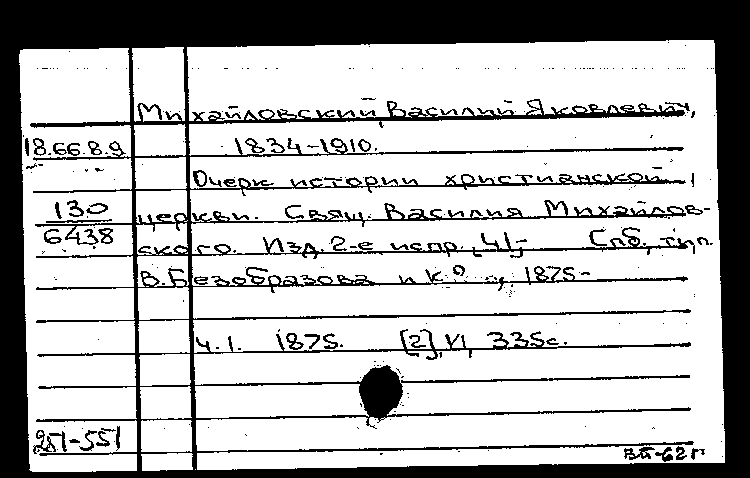 Михайловский, Василий Яковлевич,
18.66.8.9 1834-1910.
Очерк истории христианской
130 церкви. Свящ. Василия Михайлов-
6438 ского. Изд. 2-е испр. Ч. 1- Спб, тип.
В. Безобразова и К° , 1875-
Ч. 1. 1875. [2], VI, 335с.
251-551
ВП-62г